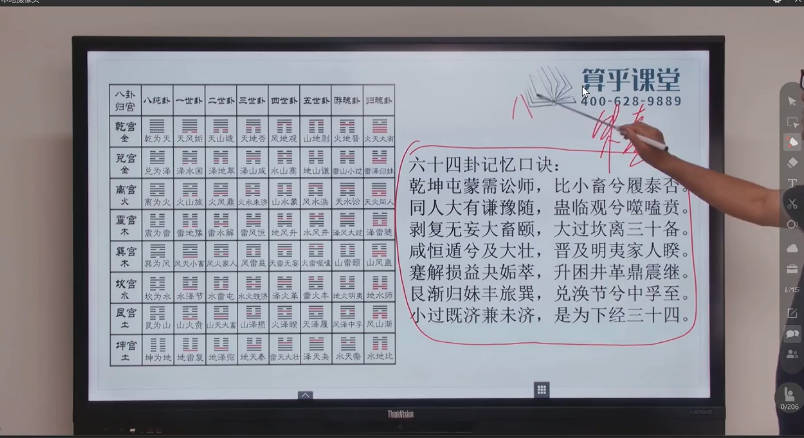 算乎课堂
400-628-9889
八卦归宫 八纯卦 一世卦 二世卦 三世卦 四世卦 五世卦 游魂卦 归魂卦
乾宫 金 乾为天 天风姤 天山遁 天地否 风地观 山地剥 火地晋 火天大有
兑宫 金 兑为泽 泽水困 泽地萃 泽山咸 水山蹇 地山谦 雷山小过 雷泽归妹
离宫 火 离为火 火山旅 火风鼎 火水未济 山水蒙 风水涣 天水讼 天火同人
震宫 木 震为雷 雷地豫 雷水解 雷风恒 地风升 水风井 泽风大过 泽雷随
巽宫 木 巽为风 风天小畜 风火家人 风雷益 天雷无妄 火雷噬嗑 山雷颐 山风蛊
坎宫 水 坎为水 水泽节 水雷屯 水火既济 泽火革 雷火丰 地火明夷 地水师
艮宫 土 艮为山 山火贲 山天大畜 山泽损 火泽睽 天泽履 风泽中孚 风山渐
坤宫 土 坤为地 地雷复 地泽临 地天泰 雷天大壮 泽天夬 水天需 水地比
六十四卦记忆口诀：
乾坤屯蒙需讼师，比小畜兮履泰否。
同人大有谦豫随，蛊临观兮噬嗑贲。
剥复无妄大畜颐，大过坎离三十备。
咸恒遁兮及大壮，晋及明夷家人睽。
蹇解损益夬姤萃，升困井革鼎震继。
艮渐归妹丰旅巽，兑涣节兮中孚至。
小过既济兼未济，是为下经三十四。
ThinkVision
0/206